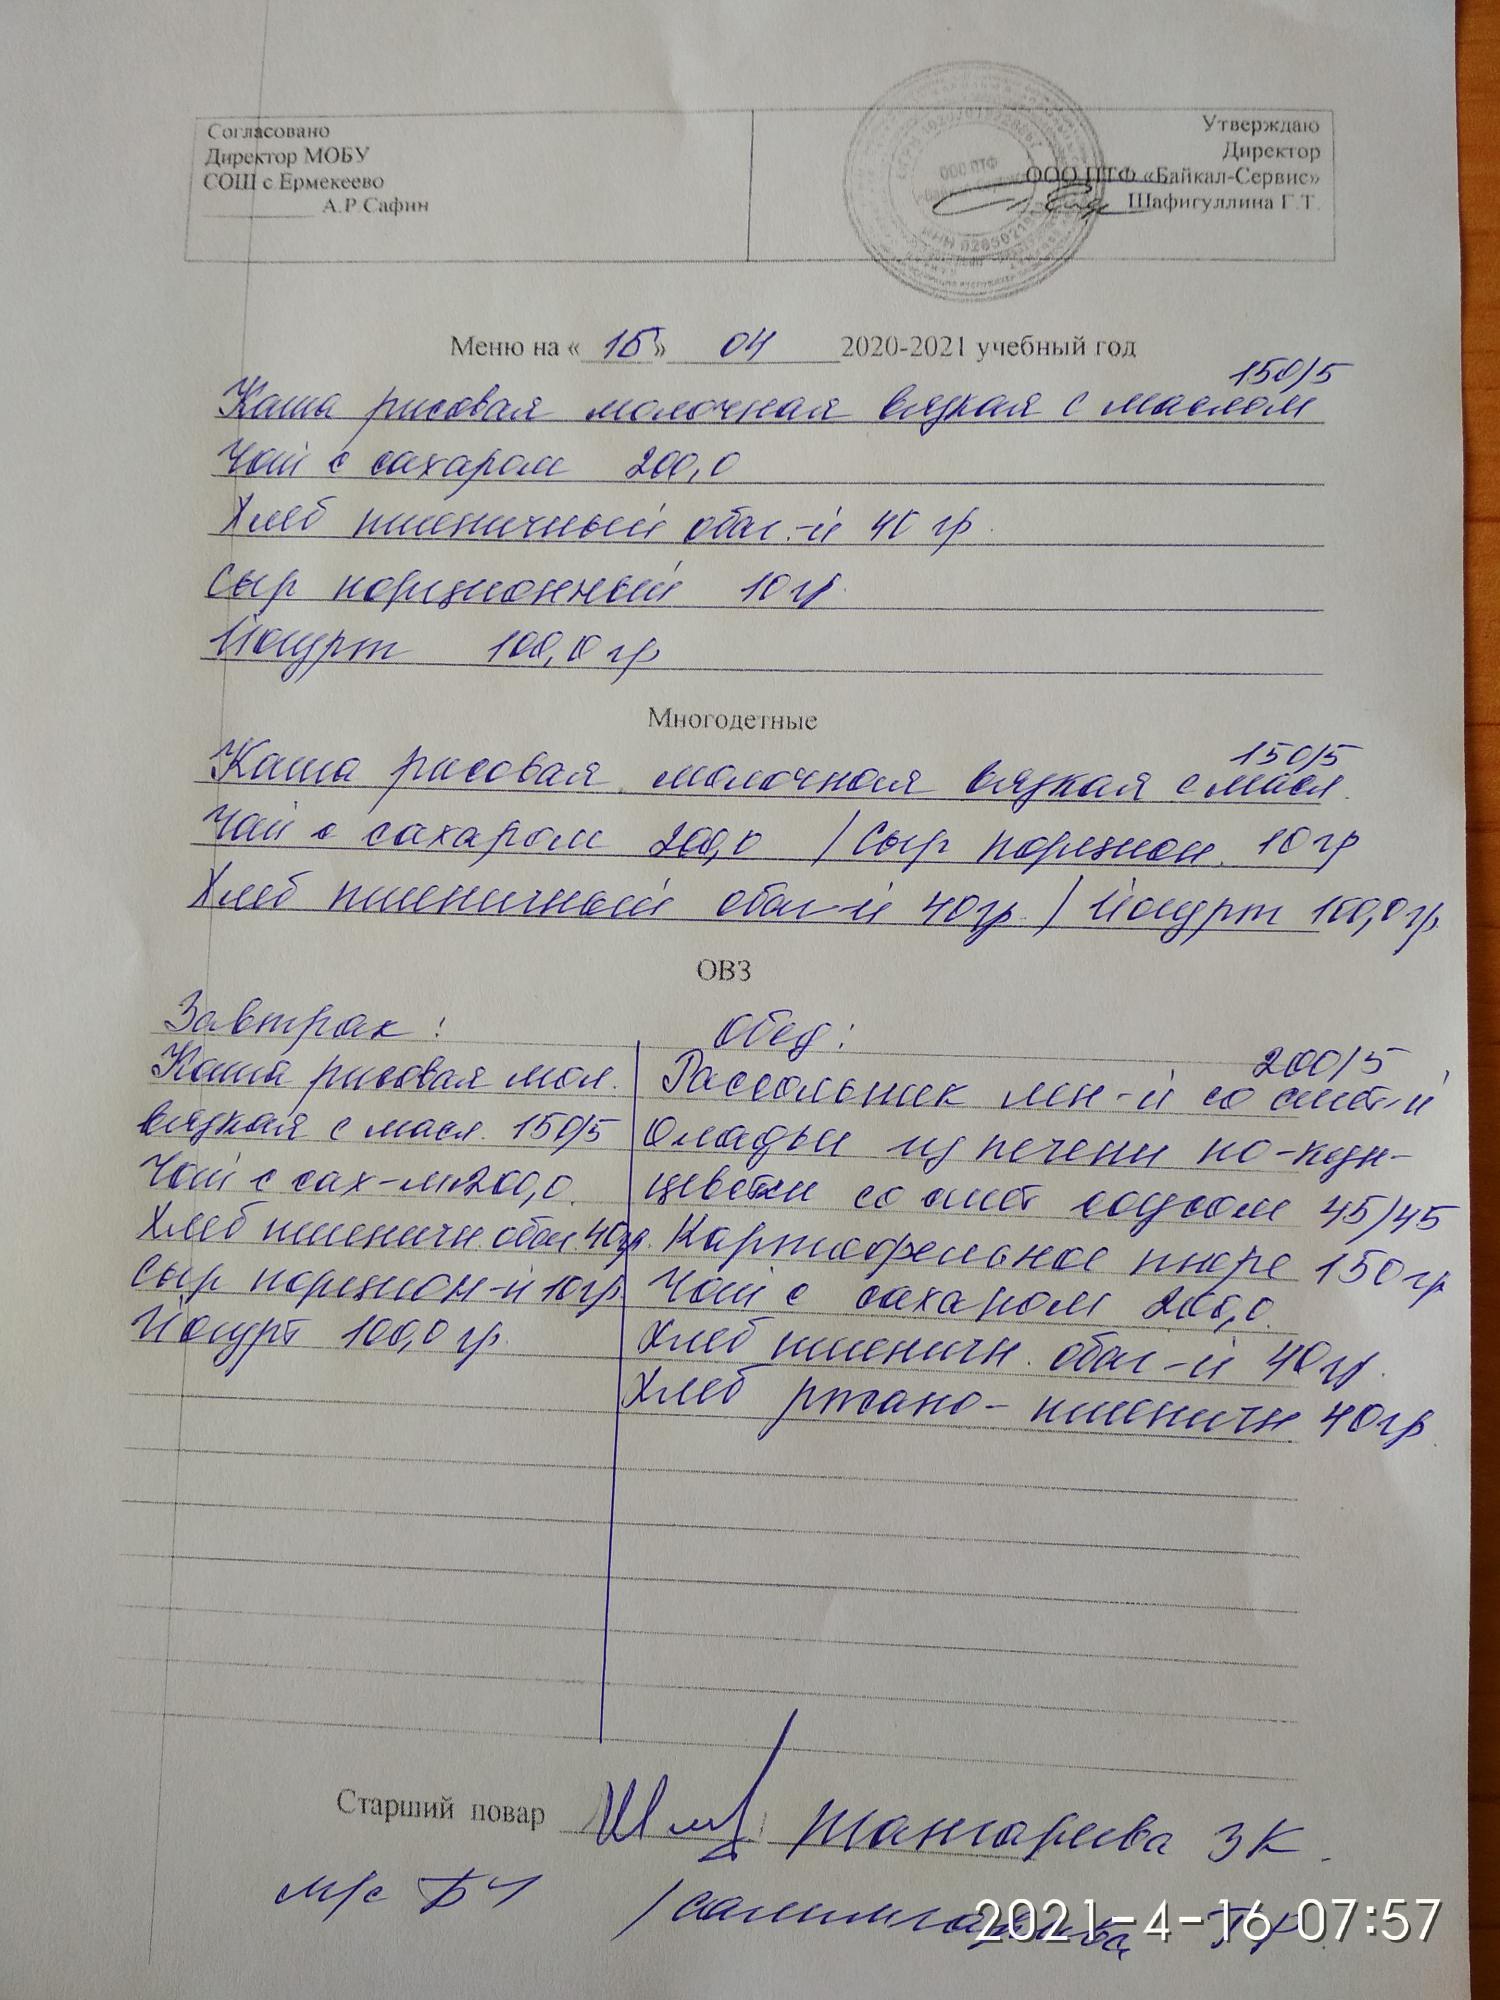 Согласовано
Директор МОБУ
СОШ с.Ермекеево
А.Р.Сафин
Утверждаю
Директор
ООО ПТФ «Байкал-Сервис»
Шафигуллина Г.Т.
ООО ПТФ
Меню на «16» 04 2020-2021 учебный год
150/5
Каша рисовая молочная вязкая с маслом
Чай с сахаром 200,0
Хлеб пшеничный обог.-й 40 гр.
Сыр порционный 10 гр.
Йогурт 100,0 гр
Многодетные
150/5
Каша рисовая молочная вязкая с масл.
Чай с сахаром 200,0 / Сыр порцион. 10 гр
Хлеб пшеничный обог-й 40гр. / Йогурт 100,0 гр
ОВЗ
Завтрак:
Каша рисовая мол.
вязкая с масл. 150/5
Чай с сах-м 200,0.
Хлеб пшеничн. обог. 40гр.
Сыр порцион-й 10гр
Йогурт 100,0 гр.
Обед:
200/5
Рассольник лен-й со смет-й
Оладьи из печени по-кун-
цевски со смет соусом 45/45
Картофельное пюре 150 гр
Чай с сахаром 200,0.
Хлеб пшеничн. обог-й 40 гр.
Хлеб ржано-пшеничн. 40гр
Старший повар Шангареева З К.
м/с
2021-4-16 07:57